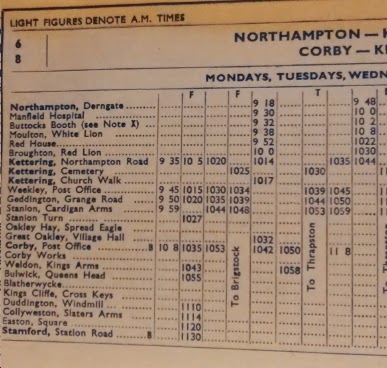 LIGHT FIGURES DENOTE A.M. TIMES
6 NORTHAMPTON —
8 CORBY —
MONDAYS, TUESDAYS, WEDN
F F T
Northampton, Derngate 9 18 9 48
Manfield Hospital 9 30 10 0
Buttocks Booth (see Note X) 9 32 10 2
Moulton, White Lion 9 38 10 8
Red House 9 52 1022
Broughton, Red Lion 10 0 1030
Kettering, Northampton Road 9 35 10 5 1020 1014 1035 1044
Kettering, Cemetery 1025 1030
Kettering, Church Walk 1017
Weekley, Post Office 9 45 1015 1030 1034 1039 1045
Geddington, Grange Road 9 50 1020 1035 1039 1044 1050
Stanion, Cardigan Arms 9 59 1044 1048 1053 1059
Stanion Turn 1027
Oakley Hay, Spread Eagle
Great Oakley, Village Hall 1032
Corby, Post Office B 10 8 1035 1053 1042 1050 11 8
Corby Works
Weldon, Kings Arms 1043 1058
Bulwick, Queens Head 1055
Blatherwycke
Kings Cliffe, Cross Keys
Duddington, Windmill 1110
Collyweston, Slaters Arms 1114
Easton, Square 1120
Stamford, Station Road B 1130
To Brigstock
To Thrapston